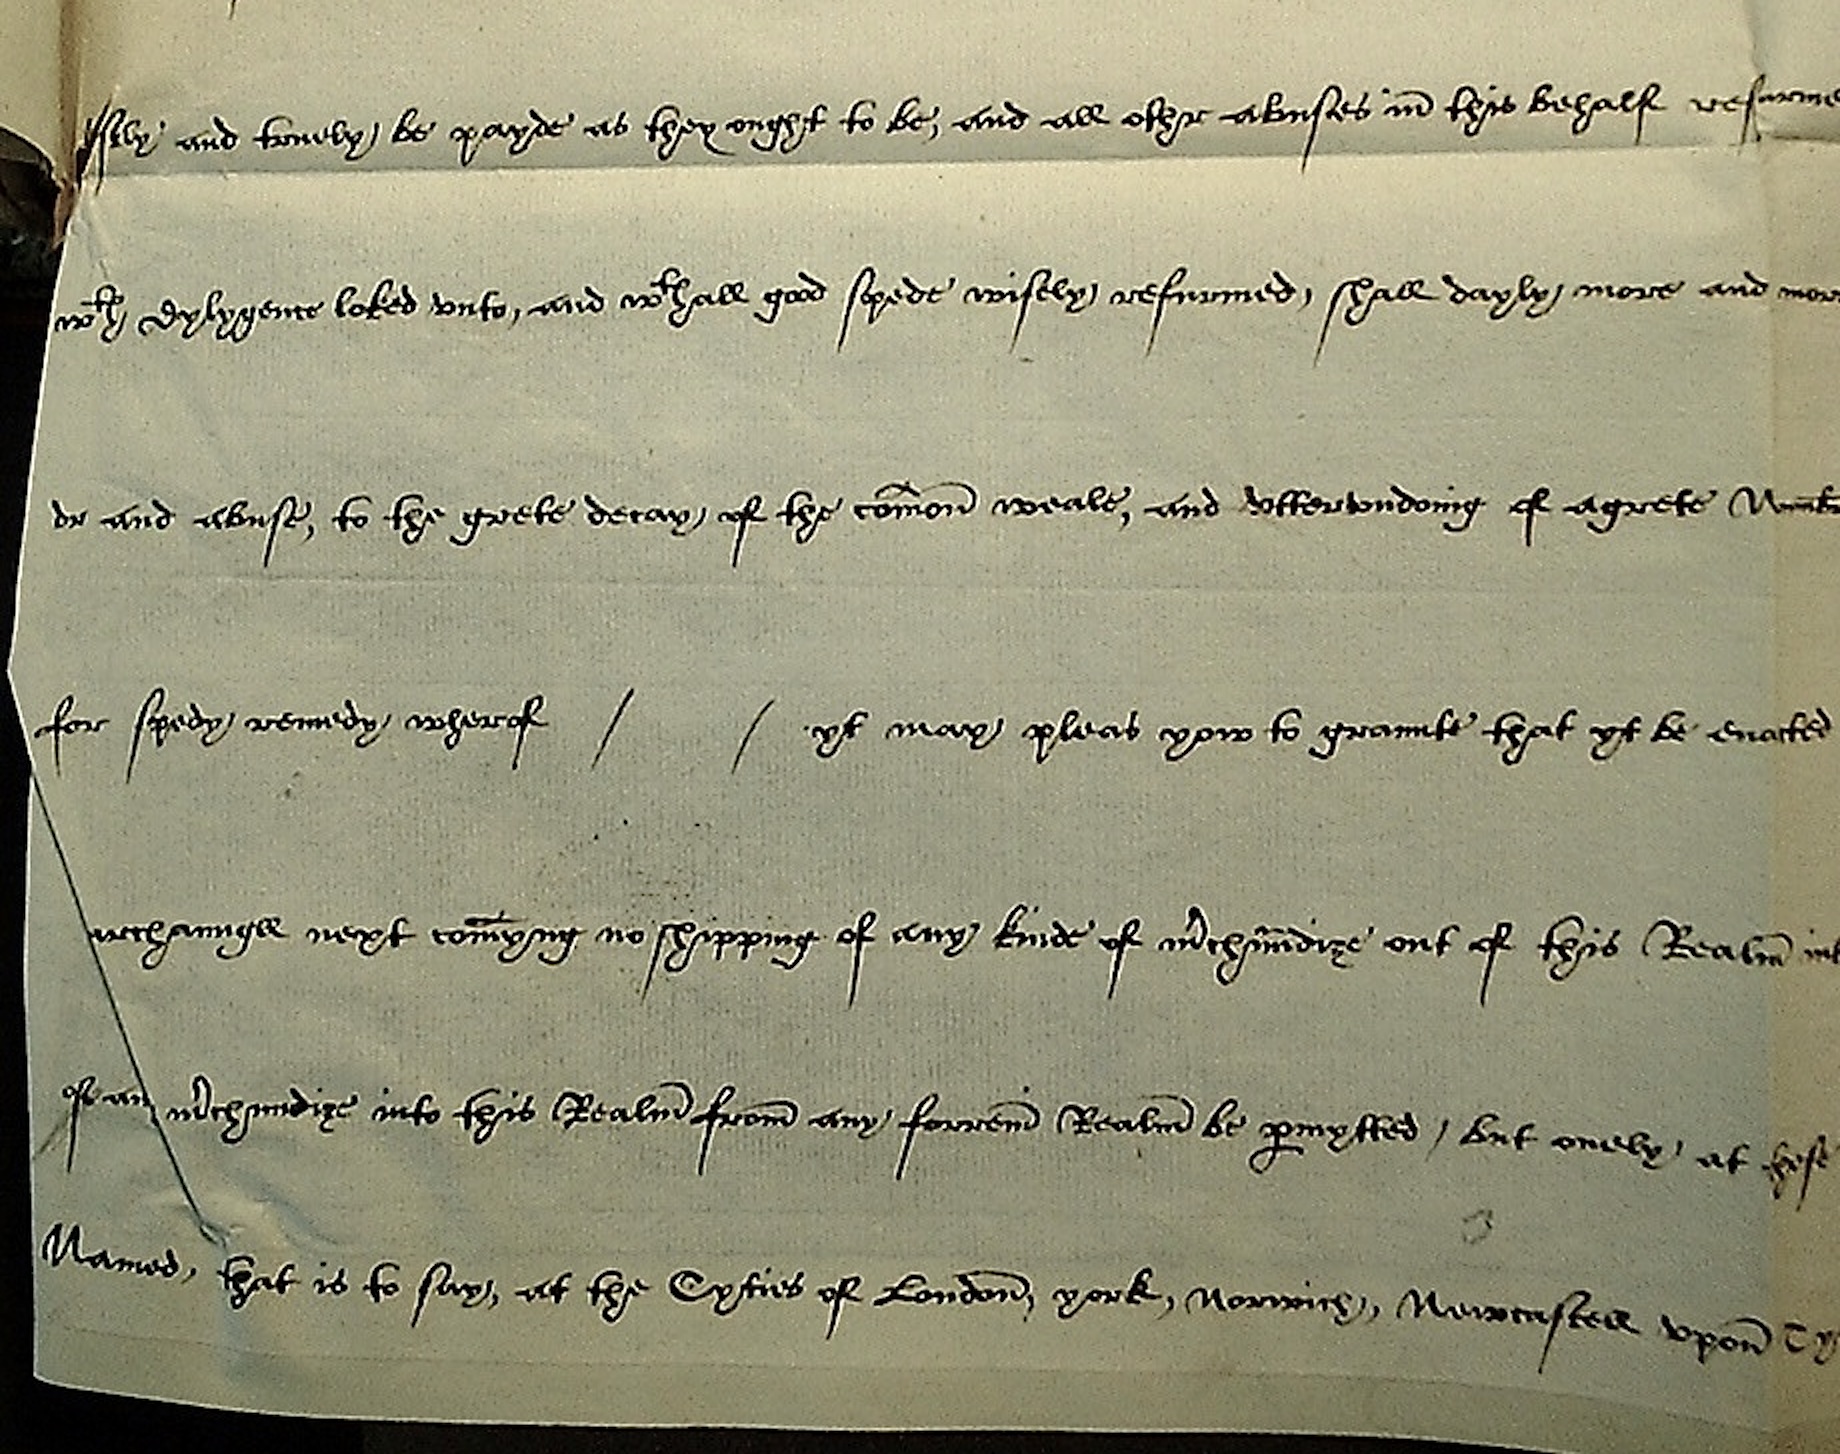 and truely be payde as they ought to be, and all othr abuses in this behalf
wth dylygence loked vnto, and wthall good spede wisely refurmed, shall dayly more and
dr and abuse, to the grete decay of the comon weale, and vtterundoing of agrete
for spedy remedy wherof / / yt may pleas yow to graunte that yt be enacted
archaungell next comyng no shipping of any kinde of mrchundize out of this Realm
of an mrchundize into this Realm from any forren Realm be pmytted, but onely at
Named, that is to say, at the Cyties of London, york, Norwich, Newcastell vpon